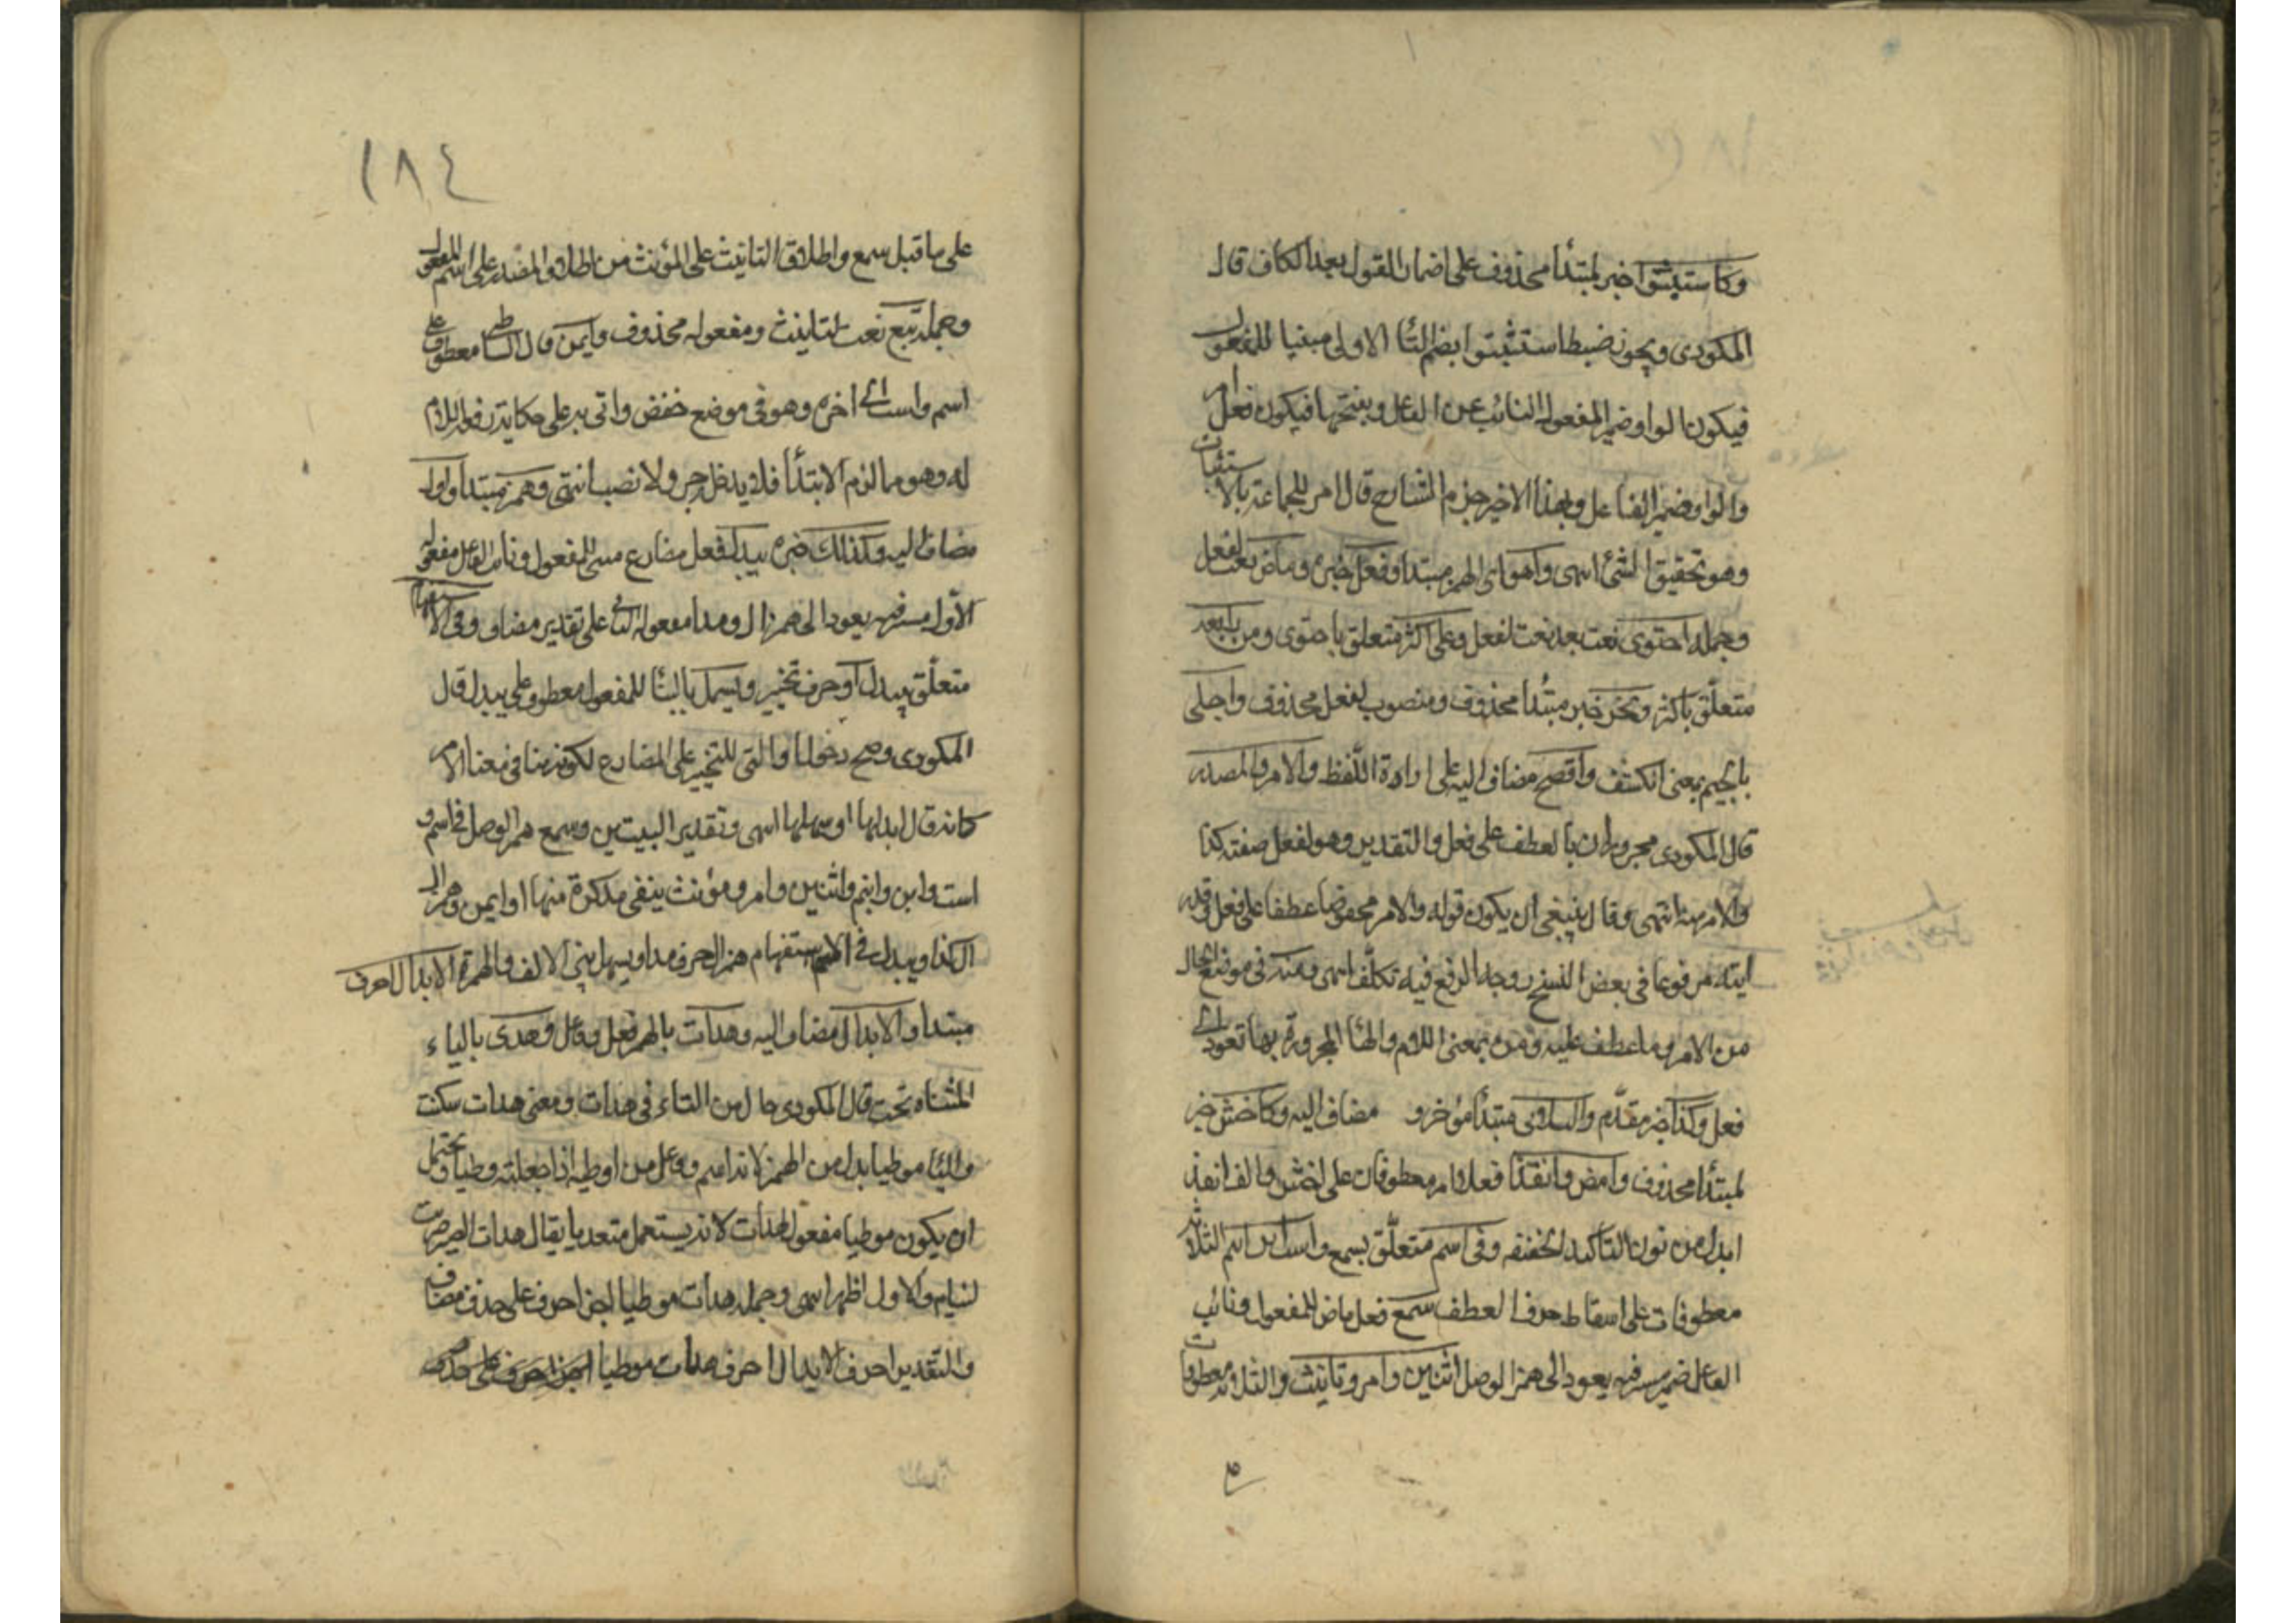 وكاستثبتوا خبر لمبتدأ محذوف على اضمار القول بعد الكاف قال
المكودى ويجوز ضبط استثبتوا بضم التا الاولى مبنيا للمفعول
فيكون الواو ضمير المفعول النائب عن الفاعل وبفتحها فيكون فعل امر
والواو ضمير الفاعل وبهذا الاخير جزم الشارح قال امر للجماعة بالاستثبات
وهو تحقيق الشئ انتهى وهو اى الهمز مبتدا وفعل خبره وماض نعت لفعل
وجملة احتوى نعت بعد نعت لفعل وعلى اكثر متعلق باحتوى ومن اربعة
متعلق باكثر ونحو خبر مبتدا محذوف ومنصوب لفعل محذوف وانجلى
بالجيم بمعنى انكشف واقصح مضاف اليه على ارادة اللفظ والامر والمصدر
قال المكودى مجروران بالعطف على فعل والتقدير وهو لفعل صفته كذا
والامر منه انتهى وقال ينبغى ان يكون قوله والامر مخفوضا عطفا على فعل وقد
رايته مرفوعا فى بعض النسخ ووجه الرفع فيه تكلف انتهى ومنه فى موضع الحال
من الامر وما عطف عليه ومن بمعنى اللام والها المجرورة بها تعود الى
فعل وكذا خبر مقدم والثلاثى مبتدأ مؤخر و مضاف اليه وكاخش خبر
لمبتدا محذوف وامض وانفذا فعلا امر معطوفان على اخش والف انفذ
ابدل من نون التاكيد الخفيفه وفى اسم متعلق بسمع واست ابن ابنم الثلاثة
معطوفات على اسقاط حرف العطف سمع فعل ماض للمفعول ونائب
الفاعل ضمير مستتر فيه يعود الى همز الوصل اثنين وامرو تانيث والثلاثة معطوفات
١٨٤
على ما قبل سمع واطلاق التانيث على المؤنث من اطلاق المصدر على اسم المفعول
وجملة تبع نعت لتانيث ومفعوله محذوف وايمن قال الشاطبى معطوف على
اسم واست الى اخره وهو فى موضع خفض واتى به على حكاية رفعه اللازم
له وهو مما لزم الابتدأ فلا يدخل جر ولا نصب انتهى وهمز مبتدا وال
مضاف اليه وكذلك خبره يبدل فعل مضارع مبنى للمفعول ونائب الفاعل مفعوله
الاول مستتر فيه يعود الى همز ال ومدا مفعوله الثانى على تقدير مضاف وفى الاستفهام
متعلق بيبدل او حرف تخيير ويسهل بالبنا للمفعول معطوف على يبدل قال
المكودى وصح دخول او التى للتخيير على المضارع لكونه هنا فى معنا الامر
كانه قال ابدلها او سهلها انتهى وتقدير البيتين وسمع همز الوصل فى اسم و
است وابن وابنم واثنين وامر ومؤنث ينفى مذكرة منها او ايمن وهمز ال
ال كذا ويبدل فى الاستفهام همز ال حرف مد او يسهل بين الالف والهمزة الابدال احرف
مبتدا والابدال مضاف اليه وهدأت بالهمز فعل وفاعل وهدى بالياء
المثناه تحت قال المكودى حال من التاء فى هدات ومعنى هدات سكنت
والياء موطيا بدل من الهمز لانه اسم وفاعل من اوطيه اذا جعلته وطيا ويحتمل
ان يكون موطيا مفعول لهدات لانه يستعمل متعديا يقال هدات الصبى ضربت
لينام والاول اظهر انتهى وجملة هدات موطيا خبر احرف على حذف مضاف
والتقدير احرف الابدال احرف هدات موطيا